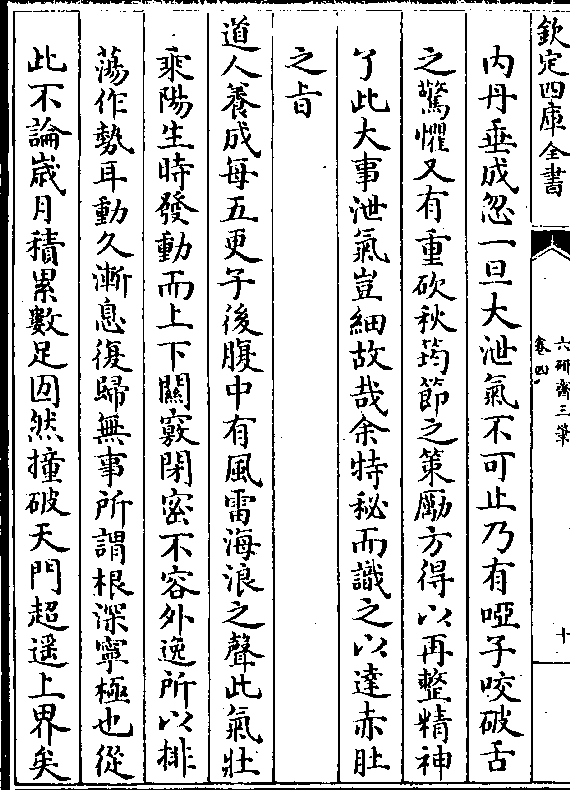 欽定四庫全書
六研齋三筆
卷四
十
內丹垂成忽一旦大泄氣不可止乃有啞子咬破舌
之驚懼又有重砍秋筠節之策勵方得以再整精神
了此大事泄氣豈細故哉余特秘而識之以達赤肚
之旨
道人養成每五更子後腹中有風雷海浪之聲此氣壯
乘陽生時發動而上下關竅閉密不容外逸所以排
蕩作勢耳動久漸息復歸無事所謂根深寧極也從
此不論歲月積累數足囫然撞破天門超遥上界矣